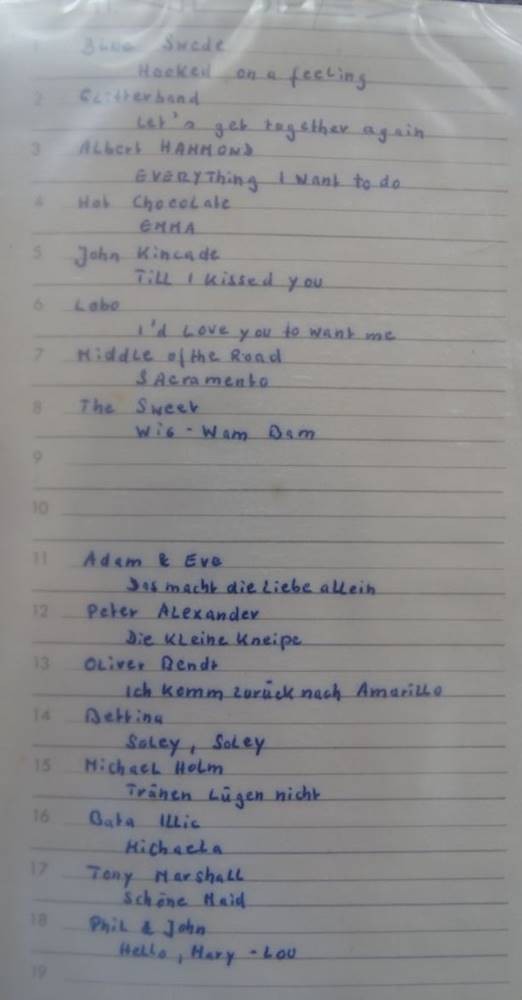 1 Blue Swede
Hooked on a feeling
2 Glitterband
Let's get together again
3 Albert HAMMOND
EVERYThing I want to do
4 Hot Chocolate
EMMA
5 John Kincade
Till I kissed you
6 Lobo
I'd Love you to want me
7 Middle of the Road
SAcramento
8 The Sweet
Wig-Wam Bam
9
10
11 Adam & Eve
Das macht die Liebe allein
12 Peter Alexander
Die kleine Kneipe
13 Oliver Bendt
Ich komm zurück nach Amarillo
14 Bettina
Soley, Soley
15 Michael Holm
Tränen Lügen nicht
16 Bata Illic
Michaela
17 Tony Marshall
Schöne Maid
18 Phil & John
Hello, Mary-Lou
19